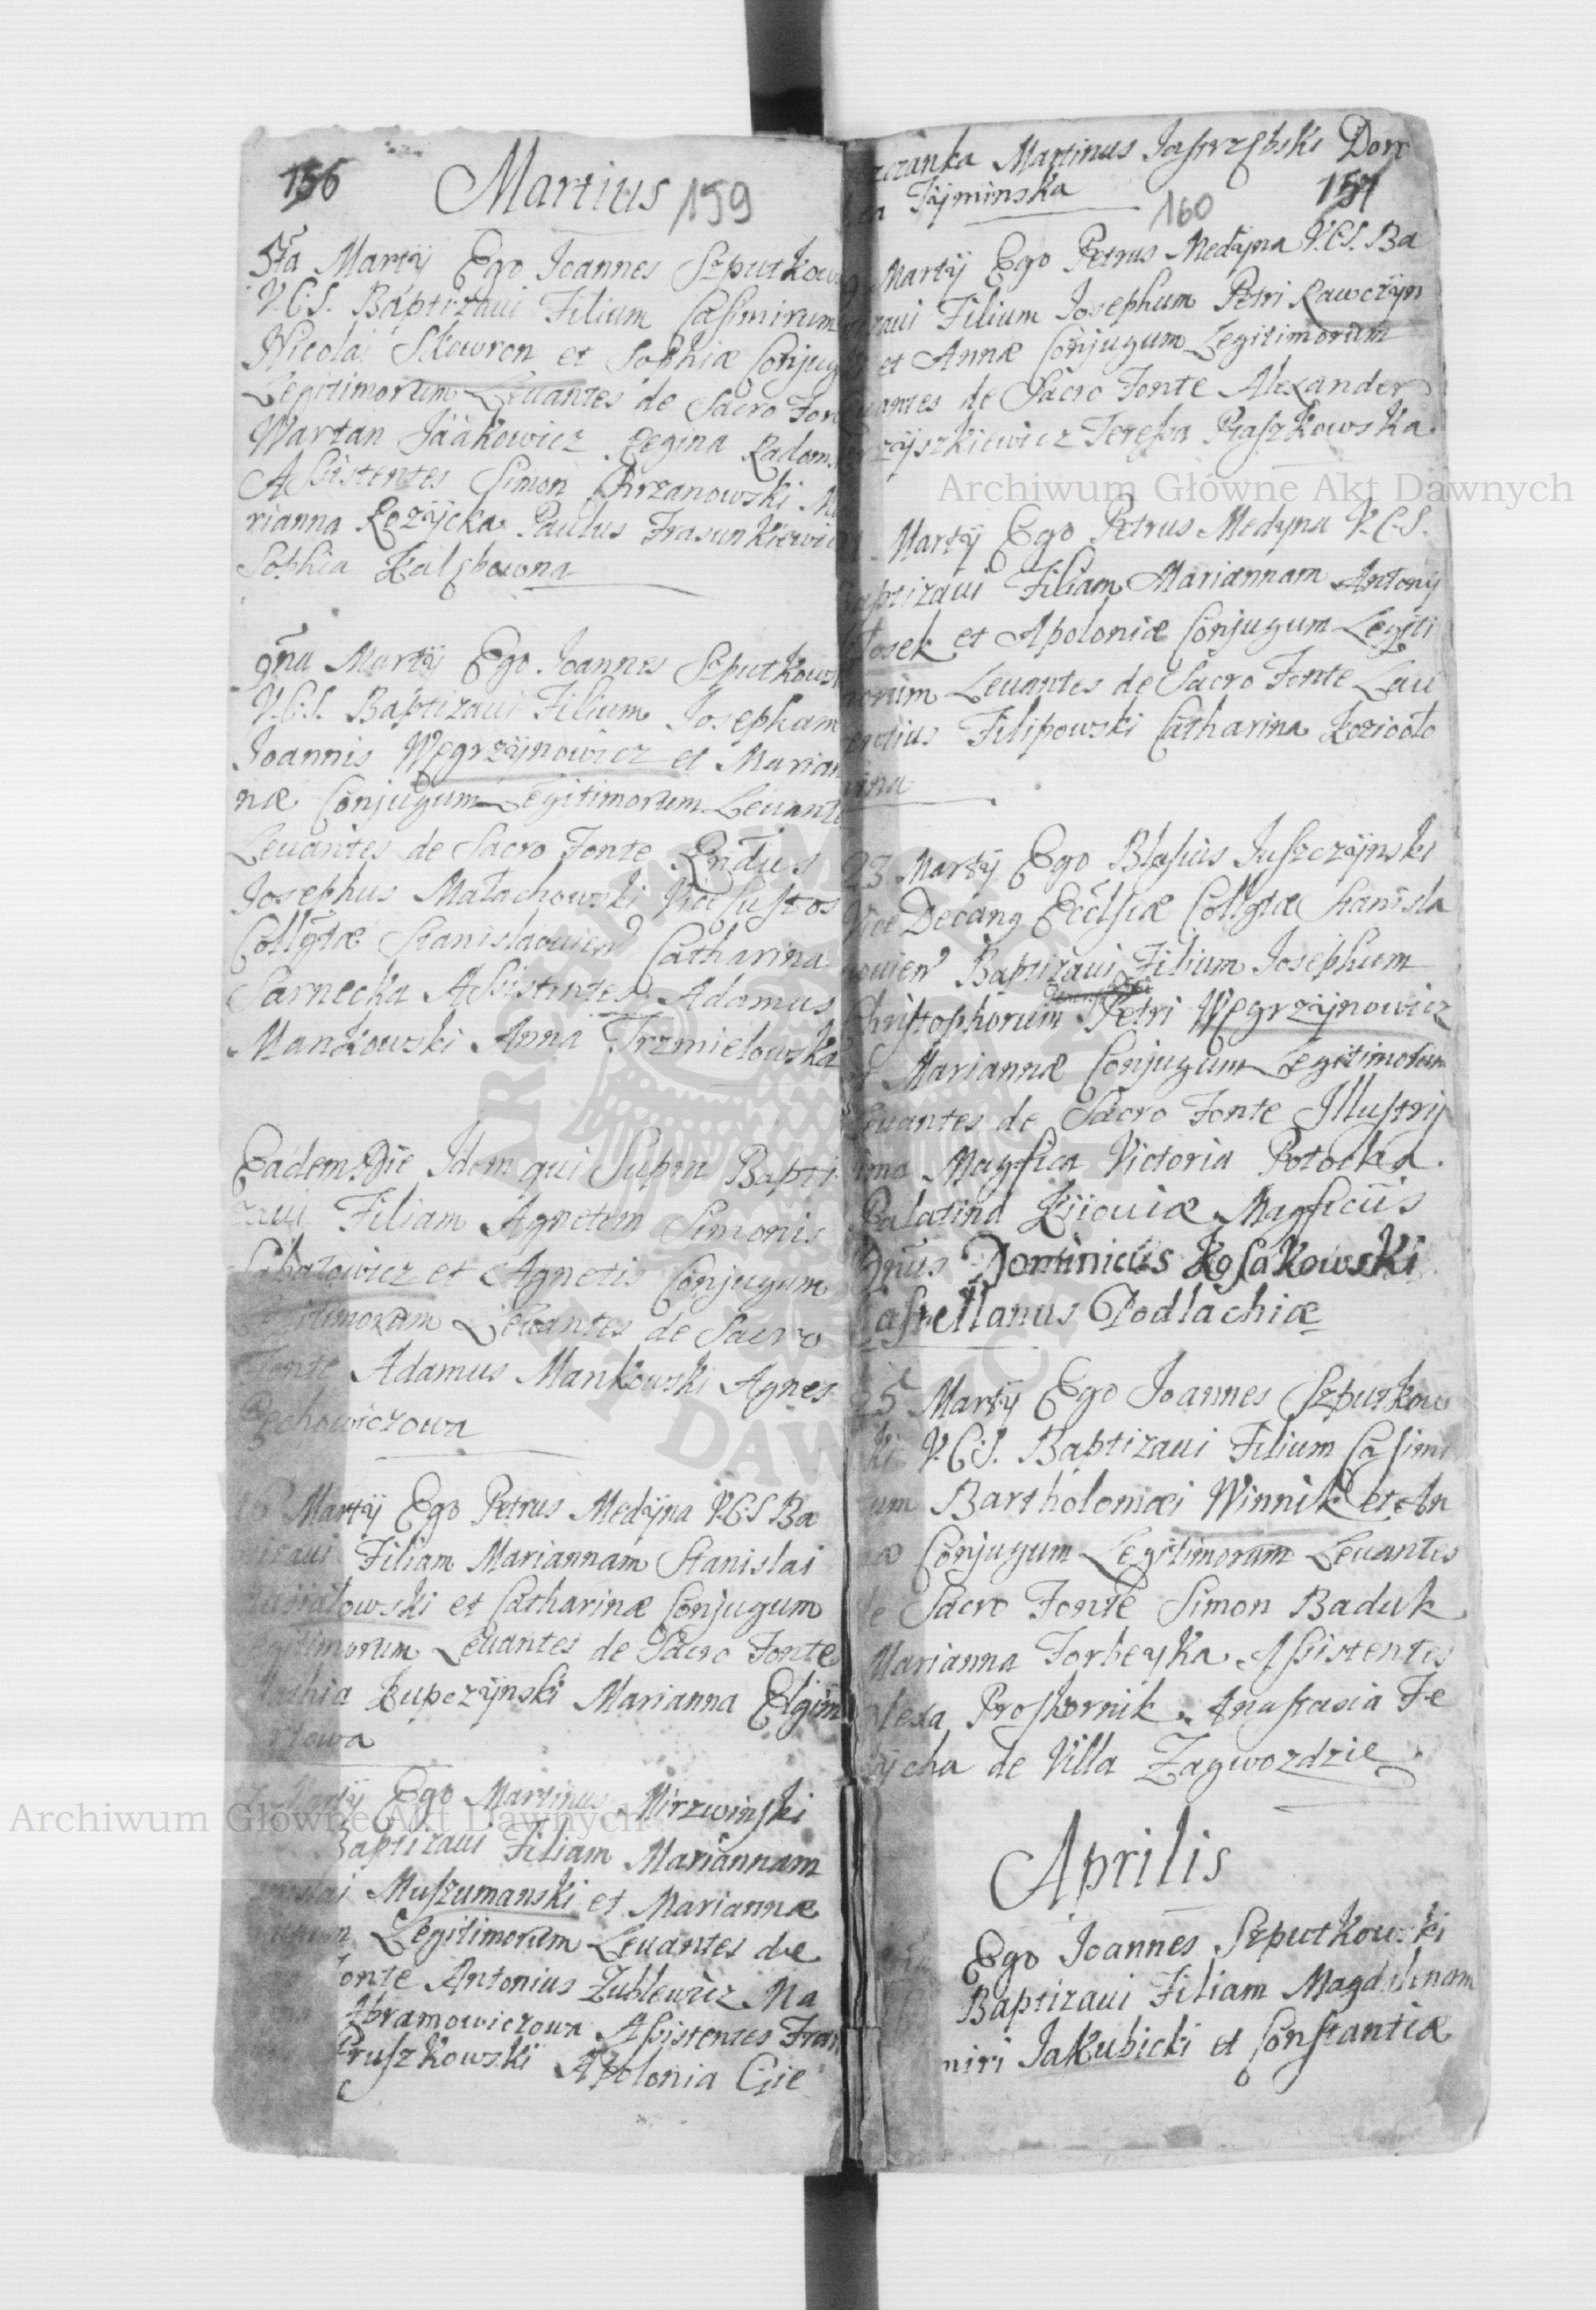 156 Martius 159
5ta Martÿ Ego Joannes Szputkow
V.C.S. Baptizaui Filium Casimirum
Nicolai Skowron et Sophiæ Conjug
Legitimorum Leuantes de Sacro Fon
Wartan Jäakowicz Regina Radoms
Assistentes Simon Chrzanowski Ma
rianna Rozÿcka Paulus Frasunkiewic
Sophia
9na Martÿ Ego Joannes Szputkows
V.C.S. Baptizaui Filium Josephum
Joannis Węgrzÿnowicz et Marian
næ Conjugum Legitimorum Leuante
Leuantes de Sacro Fonte Rndus
Josephus Małachowski ViceCustos
Collgtæ Stanislaouien Catharina
Sarnecka Assistentes Adamus
Mankowski Anna Trzmielowska
Eadem Die Idem qui Supra Bapti
zaui Filiam Agnetem Simonis
et Agnetis Conjugum
Legitimorum Leuantes de Sacro
Fonte Adamus Mankowski Agnes
Martÿ Ego Petrus Medÿna V.C.S Ba
ptizaui Filiam Mariannam Stanislai
et Catharinæ Conjugum
Legitimorum Leuantes de Sacro Fonte
Łupczÿnski Marianna Elgim
towa
Martÿ Ego Martinus Mirzwinski
Baptizaui Filiam Mariannam
Muszumanski et Mariannæ
Legitimorum Leuantes de
Fonte Antonius Zublewicz Ma
Abramowiczowa Assistentes Fran
Pruszkowski Apolonia Gie
Martinus Jastrzębski Dor
Tÿminska 160 157
Martÿ Ego Petrus Medÿna V.C.S. Ba
ptizaui Filium Josephum Petri Rawczÿn
et Annæ Conjugum Legitimorum
Leuantes de Sacro Fonte Alexander
Teressa Ptaszkowska
Martÿ Ego Petrus Medyna V.C.S.
Baptizaui Filiam Mariannam Antonÿ
et Apoloniæ Conjugum Legiti
morum Leuantes de Sacro Fonte Lau
rentius Filipowski Catharina Kozioóło
23 Martÿ Ego Blasius Juszczÿnski
Vice Decang Ecclsiæ Collgtæ Stanisla
ouien Baptizaui Filium Josephum
Christophorum Petri Węgrzÿnowicz
et Mariannæ Conjugum Legitimorum
Leuantes de Sacro Fonte Illustriss
ima Magfica Victoria Potocka
Palatina Kÿiouiæ Magficus
Dnus Dominicus Kosakowski
Castellanus Podlachiæ
25 Martÿ Ego Joannes Szputkow
ski V.C.S. Baptizaui Filium Casimi
rum Bartholomæi Winnik et An
næ Conjugum Legitimorum Leuantes
de Sacro Fonte Simon Baduk
Marianna Torbeyka Assistentes
Olexa Proskornik Anastasia Fe
ÿcha de Villa Zagwozdzie
Aprilis
Ego Joannes Szputkowski
Baptizaui Filiam Magdalenam
miri Jakubicki et Constantiæ
Archiwum Główne Akt Dawnych
Archiwum Główne Akt Dawnych